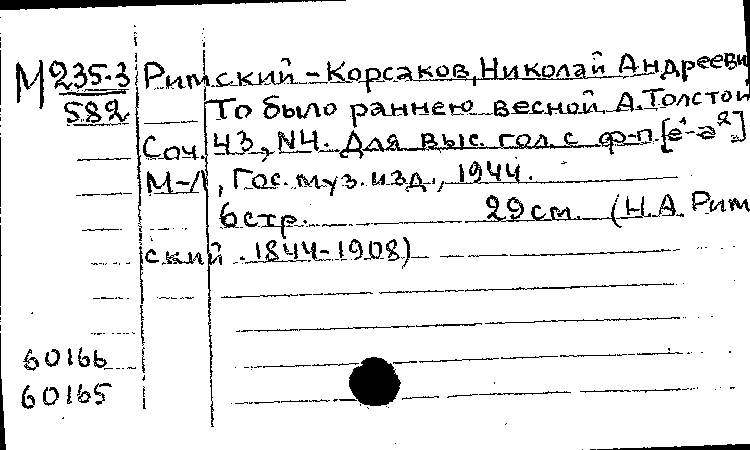 М 235-3 Римский-Корсаков, Николай Андрееви
582 То было раннею весной. А. Толстой
Соч. 43, N4. Для выс. гол. с ф-п. [e¹-a²]
М-Л, Гос. муз. изд., 1944.
6 стр. 29 см. (Н.А. Рим
ский. 1844-1908)
60166
60165